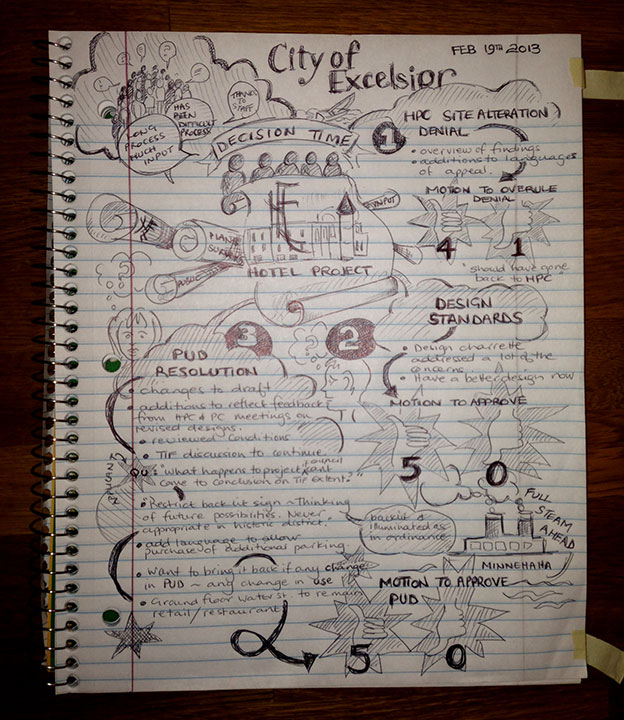 City of
Excelsior
FEB 19TH 2013
LONG
PROCESS
MUCH
INPUT
HAS
BEEN
DIFFICULT
PROCESS
THANKS
TO
STAFF
DECISION TIME
INPUT
PLANS
SURVEYS
PUBLIC
HOTEL PROJECT
1
HPC SITE ALTERATION
DENIAL
• overview of findings
• additions to languages
of appeal.
MOTION TO OVERULE
DENIAL
4 1
"should have gone
back to HPC
2
DESIGN
STANDARDS
• Design charrette
addressed a lot of the
concerns
• Have a better design now
MOTION TO APPROVE
5 0
3
PUD
RESOLUTION
• changes to draft
• additions to reflect feedback
from HPC & PC meetings on
revised designs.
• reviewed conditions
• TIF discussion to continue
QU: "What happens to project if council cant
come to conclusion on TIF extent."
• "Restrict backlit sign ~ Thinking
of future possibilities. Never
appropriate in historic district."
• add language to allow
purchase of additional parking
• Want to bring it back if any change
in PUD ~ any change in use
• Ground floor Water st to remain
retail/restaurant
backlit &
illuminated as
in ordinance
FULL
STEAM
AHEAD
MINNEHAHA
MOTION TO APPROVE
PUD
5 0